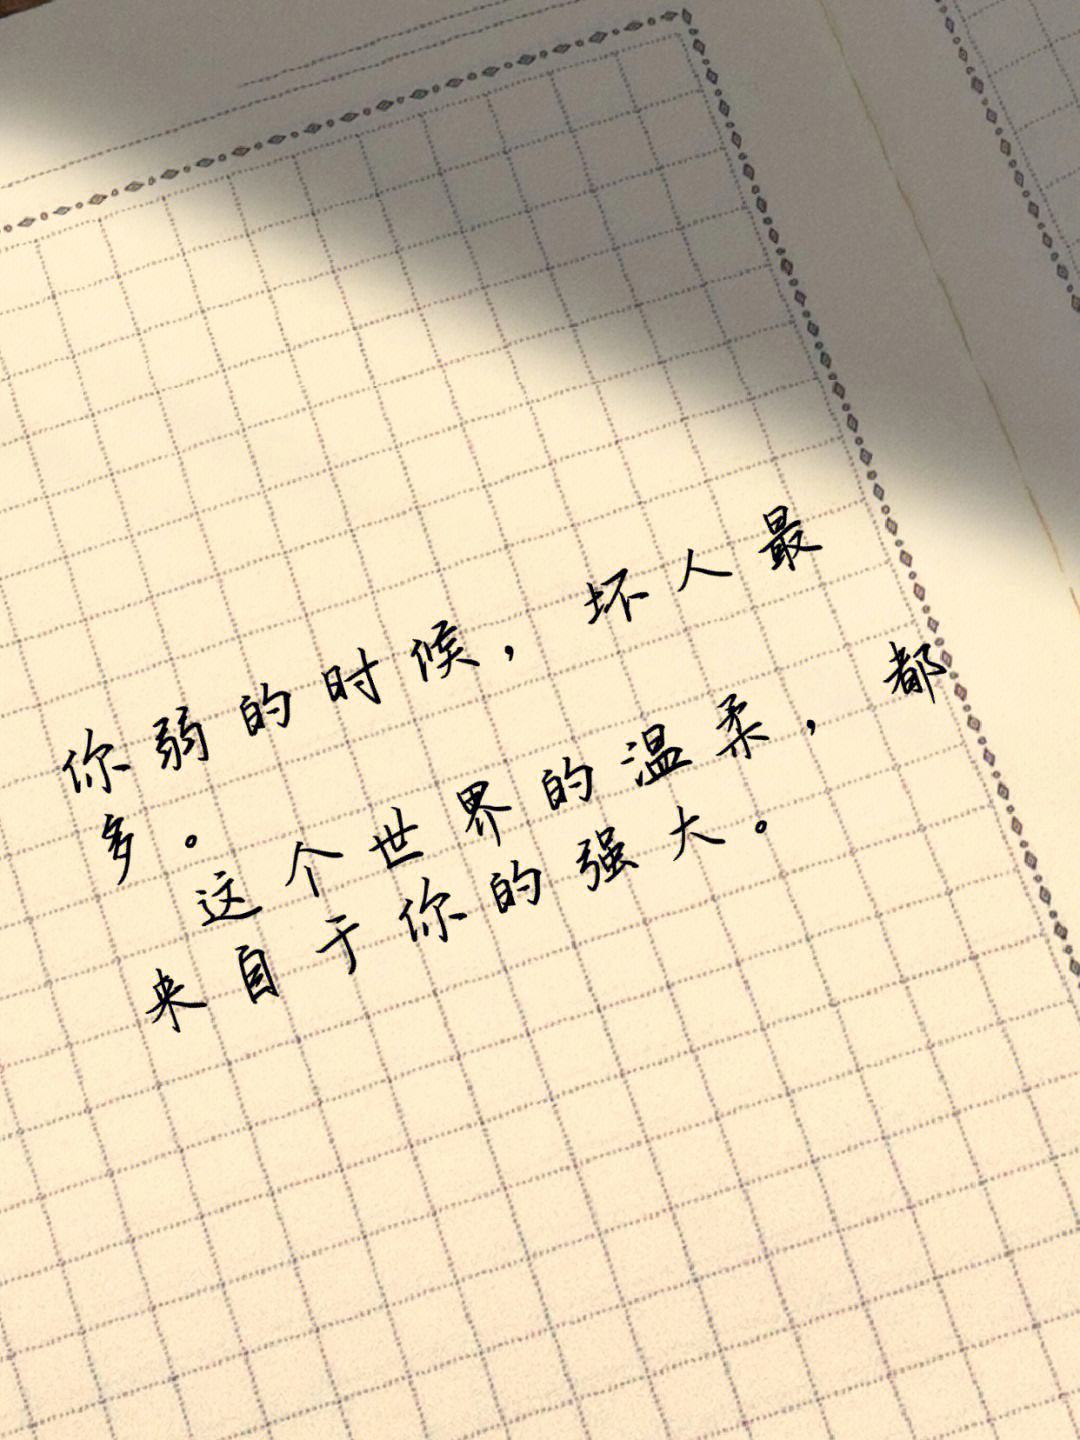 你弱的时候，坏人最
多。
这个世界的温柔，都
来自于你的强大。